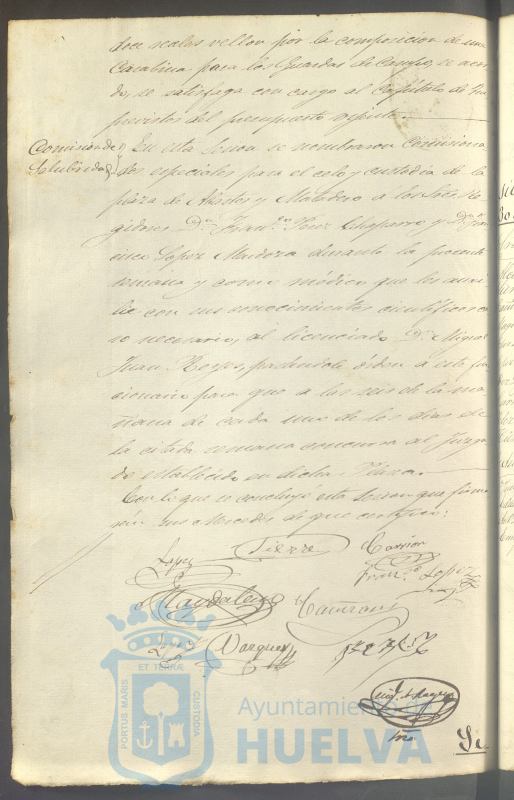 doce reales vellon por la composicion de una
Carabina para los Guardas de Campo, se acor
dó, se satisfaga con cargo al Capítulo de Im
previstos del presupuesto
Comision de
Salubridad
En esta Sesion se nombraron Comisiona
dos especiales para el celo y custodia de la
plaza de Abastos y Matadero á los Sres Re
gidores Dn. Franco. Perez Chaparro y Dn. Fran
cisco Lopez Mendoza durante la presente
semana y como médico que los auxi
lie con sus conocimientos cientificos ca
so necesario, al licenciado Dn. Miguel
Juan Reyes, pasandole órden á este fun
cionario para que á las seis de la ma
ñana de cada uno de los dias de
la citada semana concurra al Juzga
do establecido en dicha Plaza.
Con lo que se concluyó esta Sesion que firma
rán sus Mercedes de que certifico:
Lopez
Carrion
Franco. Lopez
Vazquez
ET TERRÆ
PORTUS MARIS
CUSTODIA
Ayuntamiento de
HUELVA